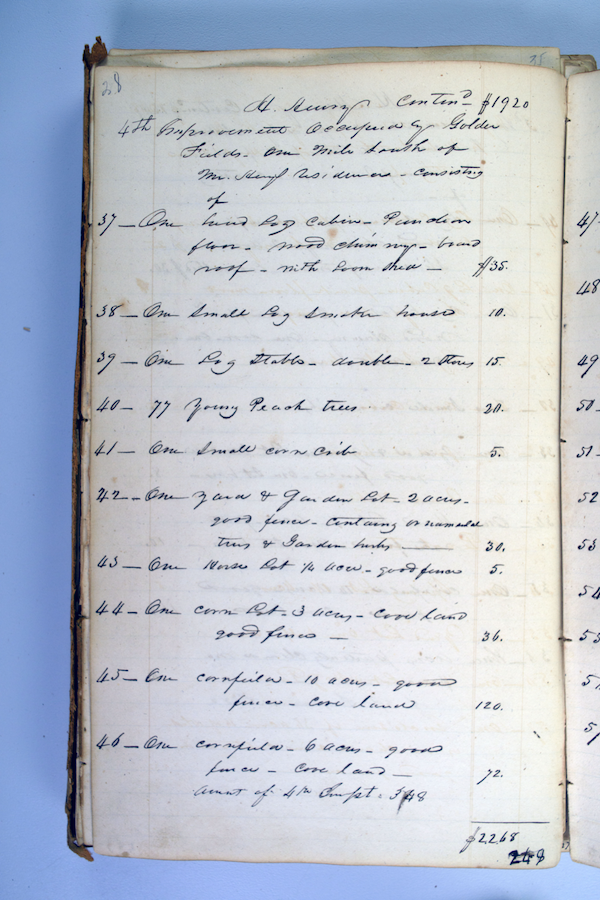 28
35
H. Henry Contind $1920
4th Improvement Occupied by Golden
Fields - One Mile South of
Mr. Henry residence - consisting
of
37 - One hewd Log Cabin - Puncheon
floor - wood chimney - board
roof - with Loom shed - $35.
38 - One Small Log Smoke house 10.
39 - One Log Stable - double - 2 Stories 15.
40 - 77 Young Peach trees 20.
41 - One Small corn crib 5.
42 - One Yard & Garden Lot - 2 acres -
good fence - containg ornamental
trees & Garden herbs 30.
43 - One Horse Lot ¼ acre - good fence 5.
44 - One corn Lot - 3 acres - Cove land
good fence - 36.
45 - One cornfield - 10 acres - good
fence - Cove land 120.
46 - One cornfield - 6 acres - good
fence - Cove land - 72.
Amnt of 4th Impt = 348
$2268
248
47-
48
49
50-
51-
52
53
54
55